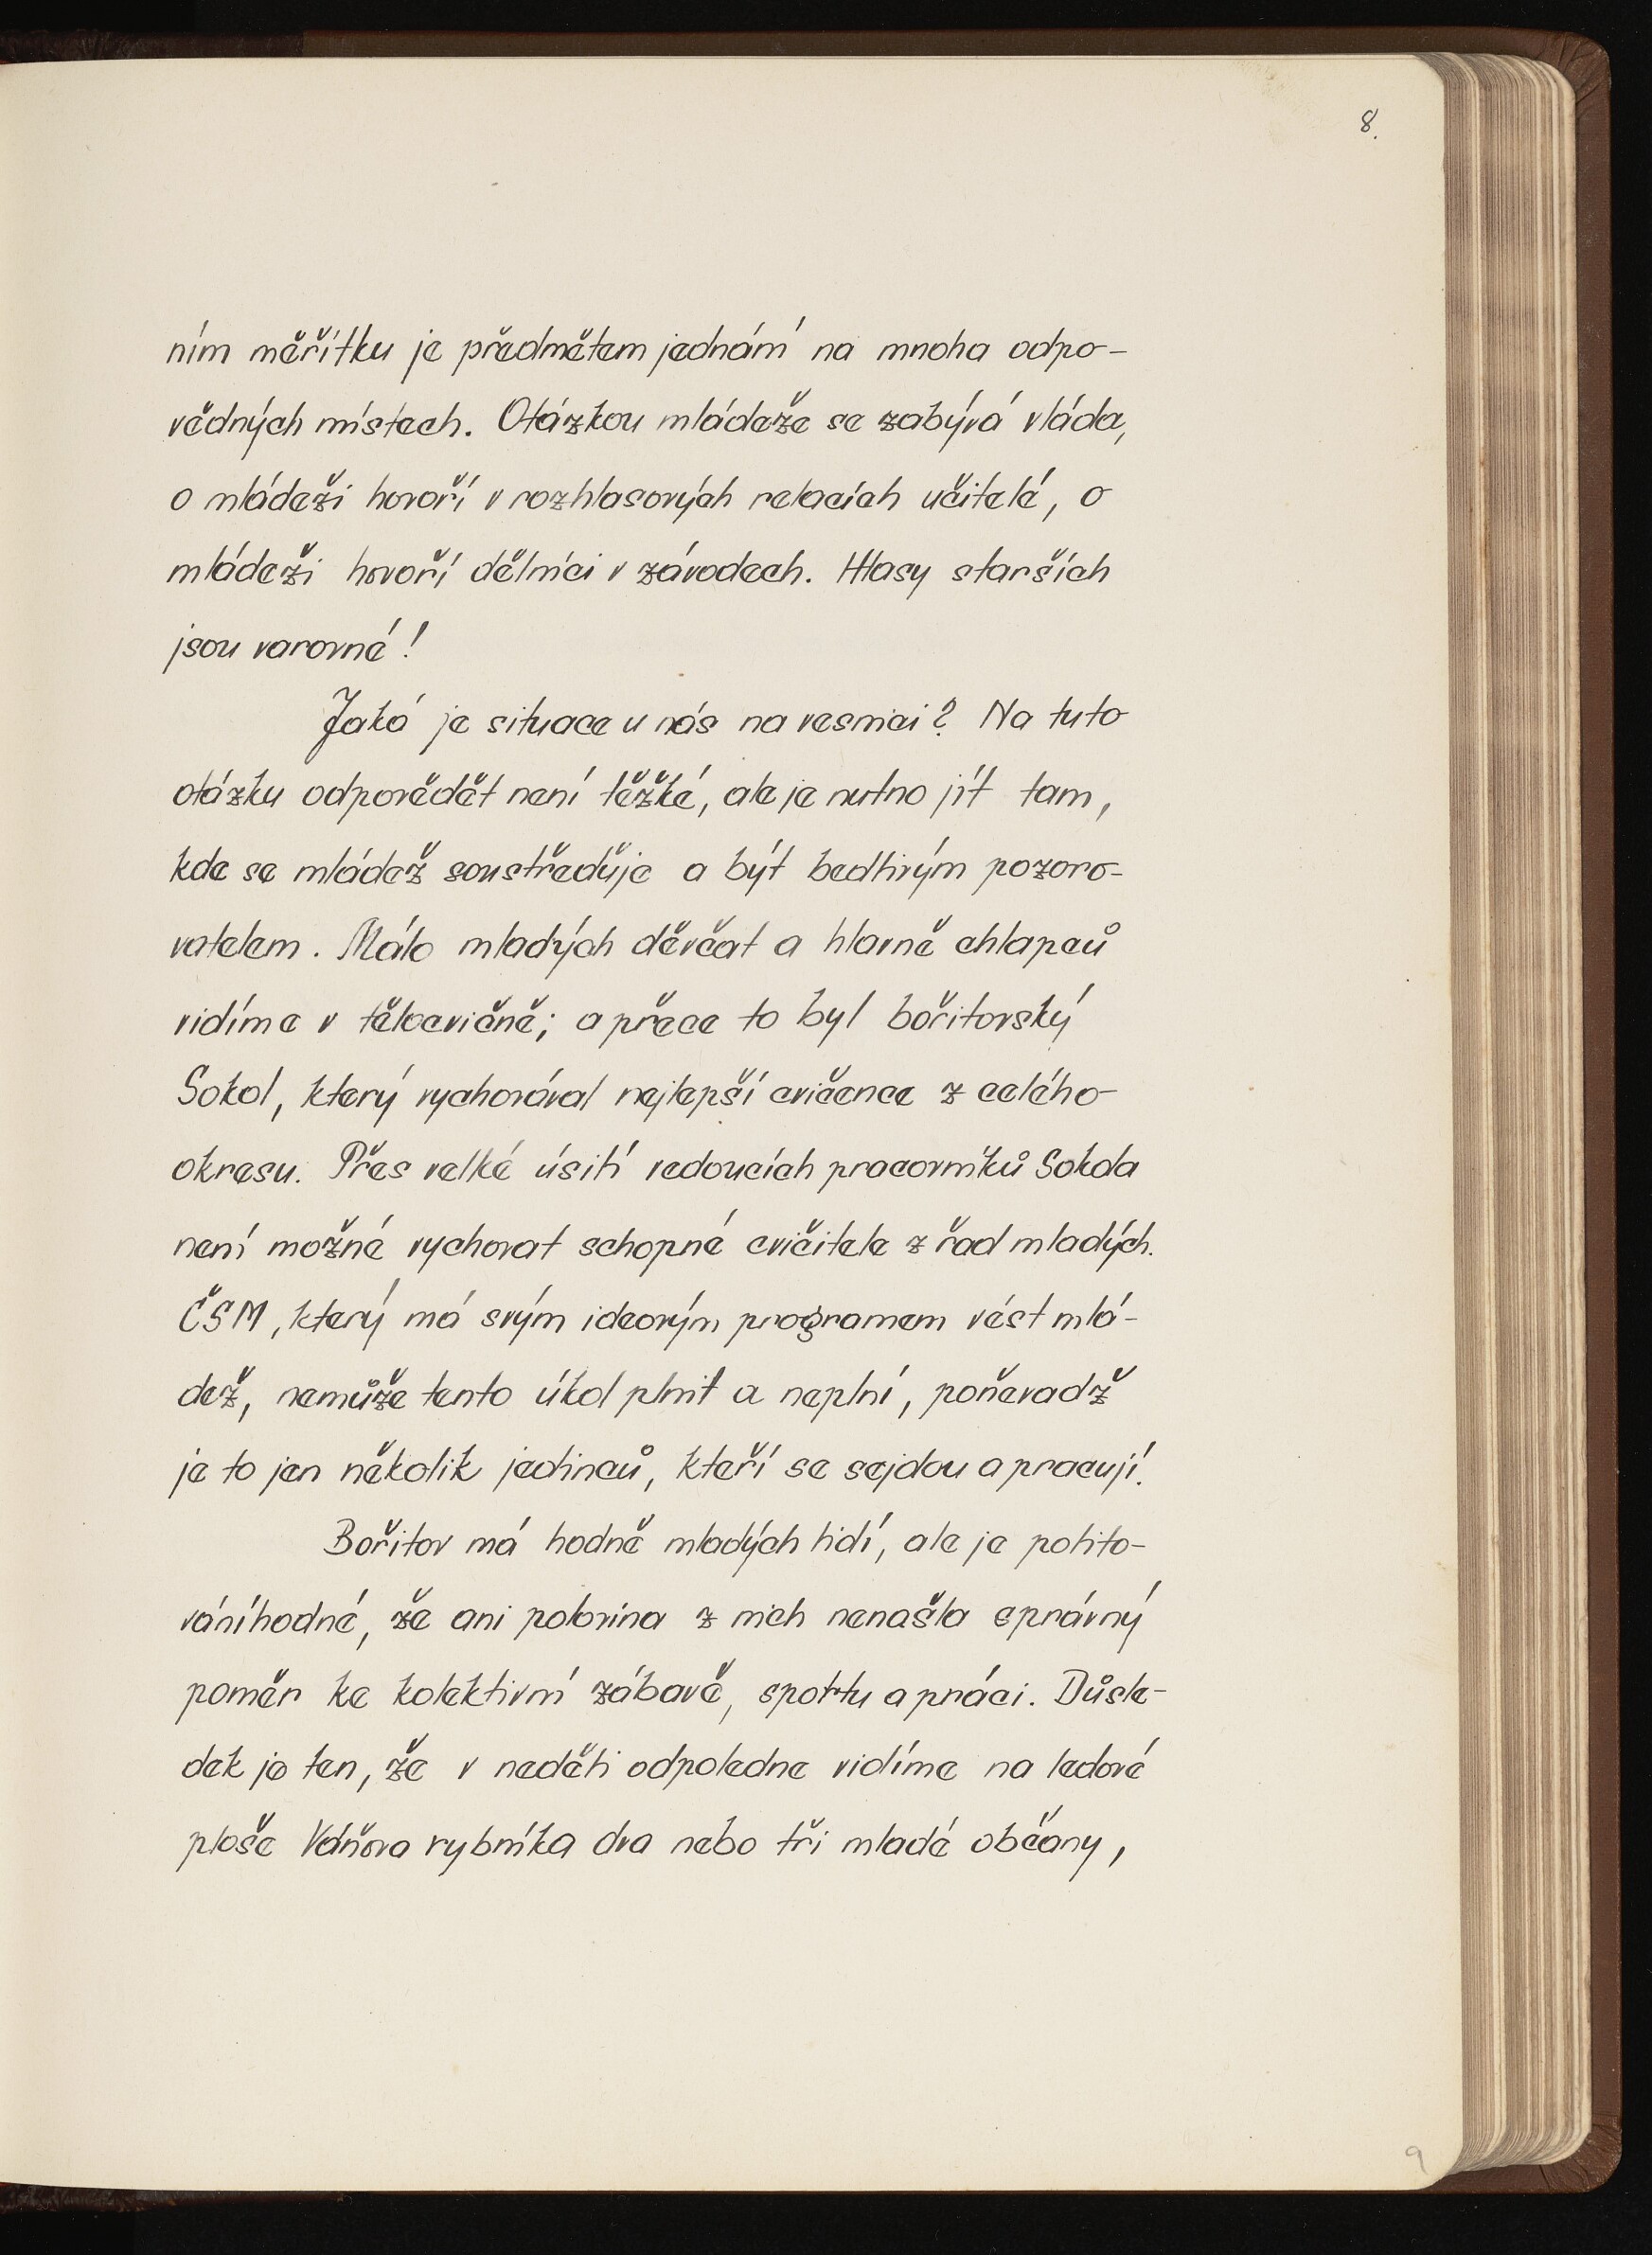 8.
ním měřítku je předmětem jednání na mnoha odpo-
vědných místech. Otázkou mládeže se zabývá vláda,
o mládeži hovoří v rozhlasových relacích učitelé, o
mládeži hovoří dělníci v závodech. Hlasy starších
jsou varovné!
Jaká je situace u nás na vesnici? Na tuto
otázku odpovědět není těžké, ale je nutno jít tam,
kde se mládež soustřeďuje a být bedlivým pozoro-
vatelem. Málo mladých děvčat a hlavně chlapců
vidíme v tělocvičně; a přece to byl bořitovský
Sokol, který vychovával nejlepší cvičence z celého
okresu. Přes velké úsilí vedoucích pracovníků Sokola
není možné vychovat schopné cvičitele z řad mladých.
ČSM, který má svým ideovým programem vést mlá-
dež, nemůže tento úkol plnit a neplní, poněvadž
je to jen několik jedinců, kteří se sejdou a pracují.
Bořitov má hodně mladých lidí, ale je polito-
váníhodné, že ani polovina z nich nenašla správný
poměr ke kolektivní zábavě, sportu a práci. Důsle-
dek je ten, že v neděli odpoledne vidíme na ledové
ploše Váňova rybníka dva nebo tři mladé občany,
9